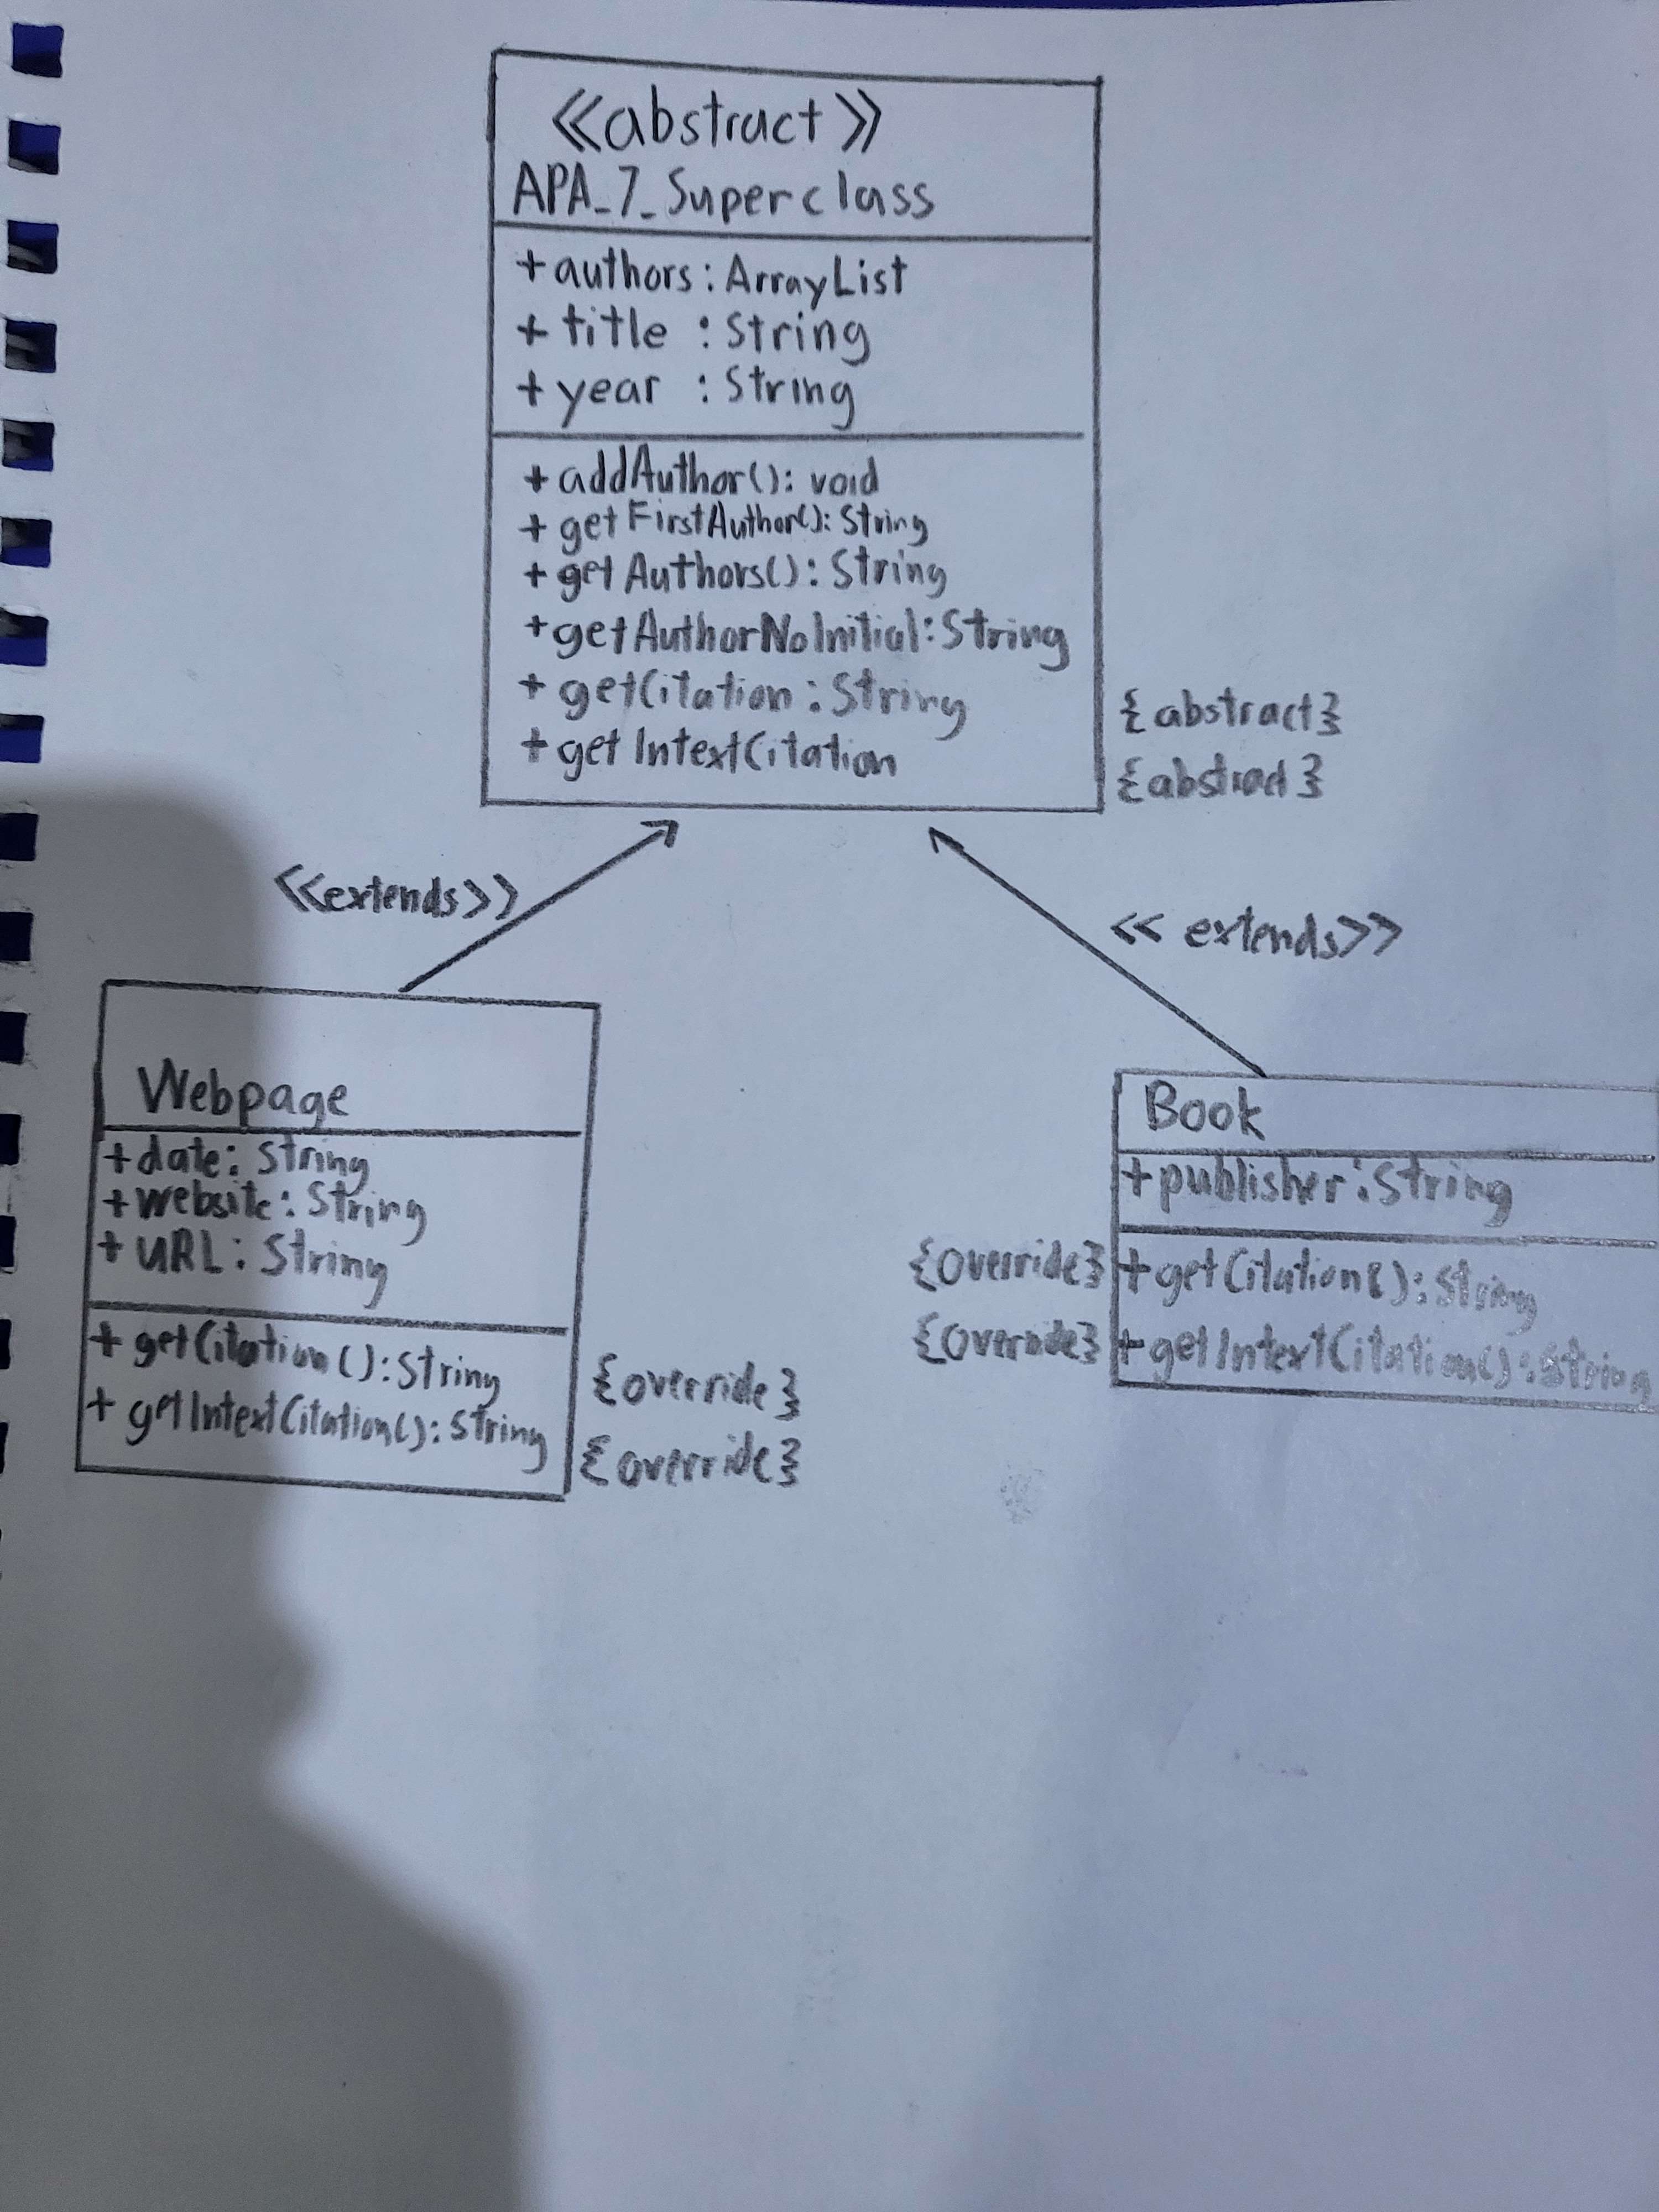 <<abstract>>
APA_7_Superclass
+authors: ArrayList
+ title : String
+ year : String
+ addAuthor(): void
+ getFirstAuthor(): String
+ getAuthors(): String
+getAuthorNoInitial: String
+ getCitation: String
{abstract}
+ getIntextCitation
{abstract}
<<extends>>
<< extends>>
Webpage
+date: String
+website: String
+ URL: String
+ getCitation(): String
{override}
+ getIntextCitation(): String
{override}
Book
+publisher: String
{override} +getCitation(): String
{override} +getIntextCitation(): String